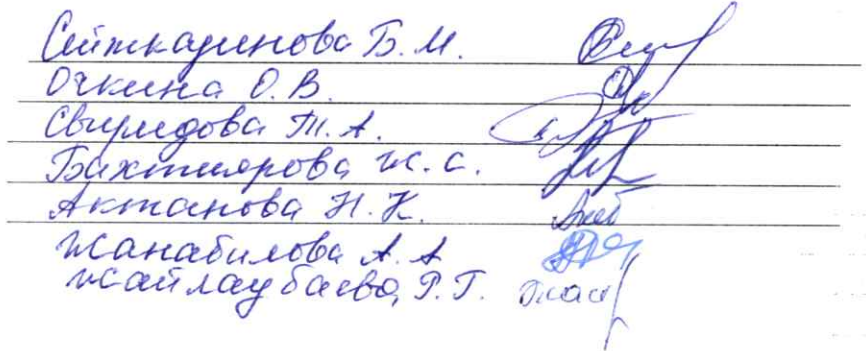 Сейткаринова Б. М.
Очкина О. В.
Свиридова Т. А.
Бахтиярова Ж. С.
Актанова Н. К.
Жанабилова А. А
Жайлаубаева Р. Г.